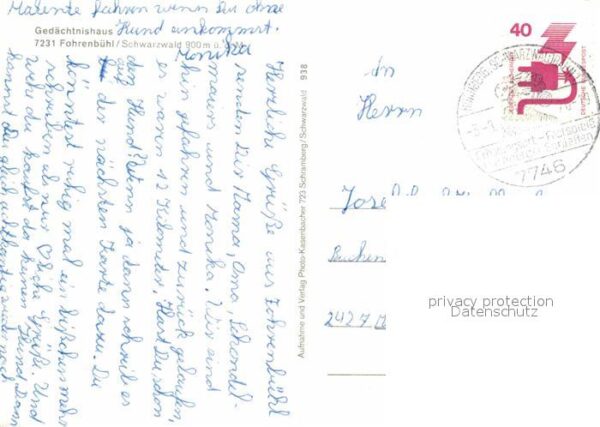 Malente fahren wenn Du ohne
Hund ankommst.
Monika
Gedächtnishaus
7231 Fohrenbühl / Schwarzwald 900 m ü.
Herzliche Grüße aus Fohrenbühl
senden Dir Mama, Oma,
und Monika. Wir sind
hin gefahren und zurück gelaufen,
es waren 12 Kilometer. Hast Du schon
den Hund? Wenn ja dann schreib es
auf der nächsten Karte dazu. Du
könntest ruhig mal ein bißchen mehr
schreiben als nur liche Grüße. Und
kaufst du keinen Hund. Dann
kannst Du gleich
Aufnahme und Verlag Photo-Kasenbacher 723 Schramberg / Schwarzwald 938
An
Herrn
Jose
Buchen
2427 M
40
DEUTSCHE BUNDESPOST
7746
privacy protection
Datenschutz